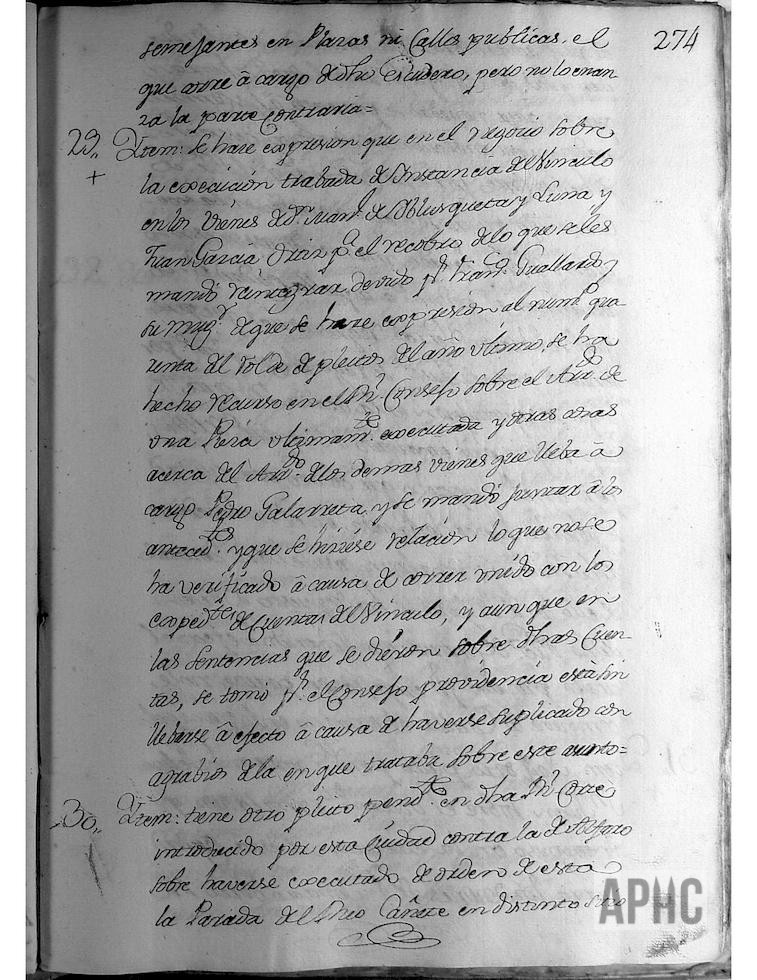 274
semejantes en Plazas ni Calles publicas, el
que corre â cargo de dho Escudero, pero no lo enan
za la parte Contraria=
29,, Ytem: se haze expresion que en el negozio sobre
+ la execuición trabada de Instancia del Vinculo
en los vienes de Dn. Manl. de Oblusqueta y Luna y
Juan Garcia Ortiz pa. el recobro de lo que se les
mandó reintegrar devido pr. Franco. Guallardo y
su mugr. de que se haze expresion al numo. qua
renta del rolde de pleitos del año vltimo, se ha
hecho recurso en el Rl. Consejo sobre el Arrdo. de
vna Pieza vltimamte. executada y otras cosas
acerca del Arrdo. de los demas vienes que lleba â
cargo Pedro Galarreta, y se mandó juntar â los
antecedtes. y que se hiziese relación lo que no se
ha verificado â causa de correr vnido con los
expedtes. de Cuentas del Vinculo, y aun que en
las sentencias que se diéron sobre dhas Cuen-
tas, se tomó pr. el Consejo providencia está sin
lleberse â efecto â causa de haverse suplicado con
agrabios de la en que trataba sobre este asunto=
30,, Ytem: tiene otro pleito pendte. en dha Rl. Corte
introducido por esta Ciudad contra la de Alfaro
sobre haverse executado de orden de esta
la Parada del Rio Cañete en distinto sitio
APHC